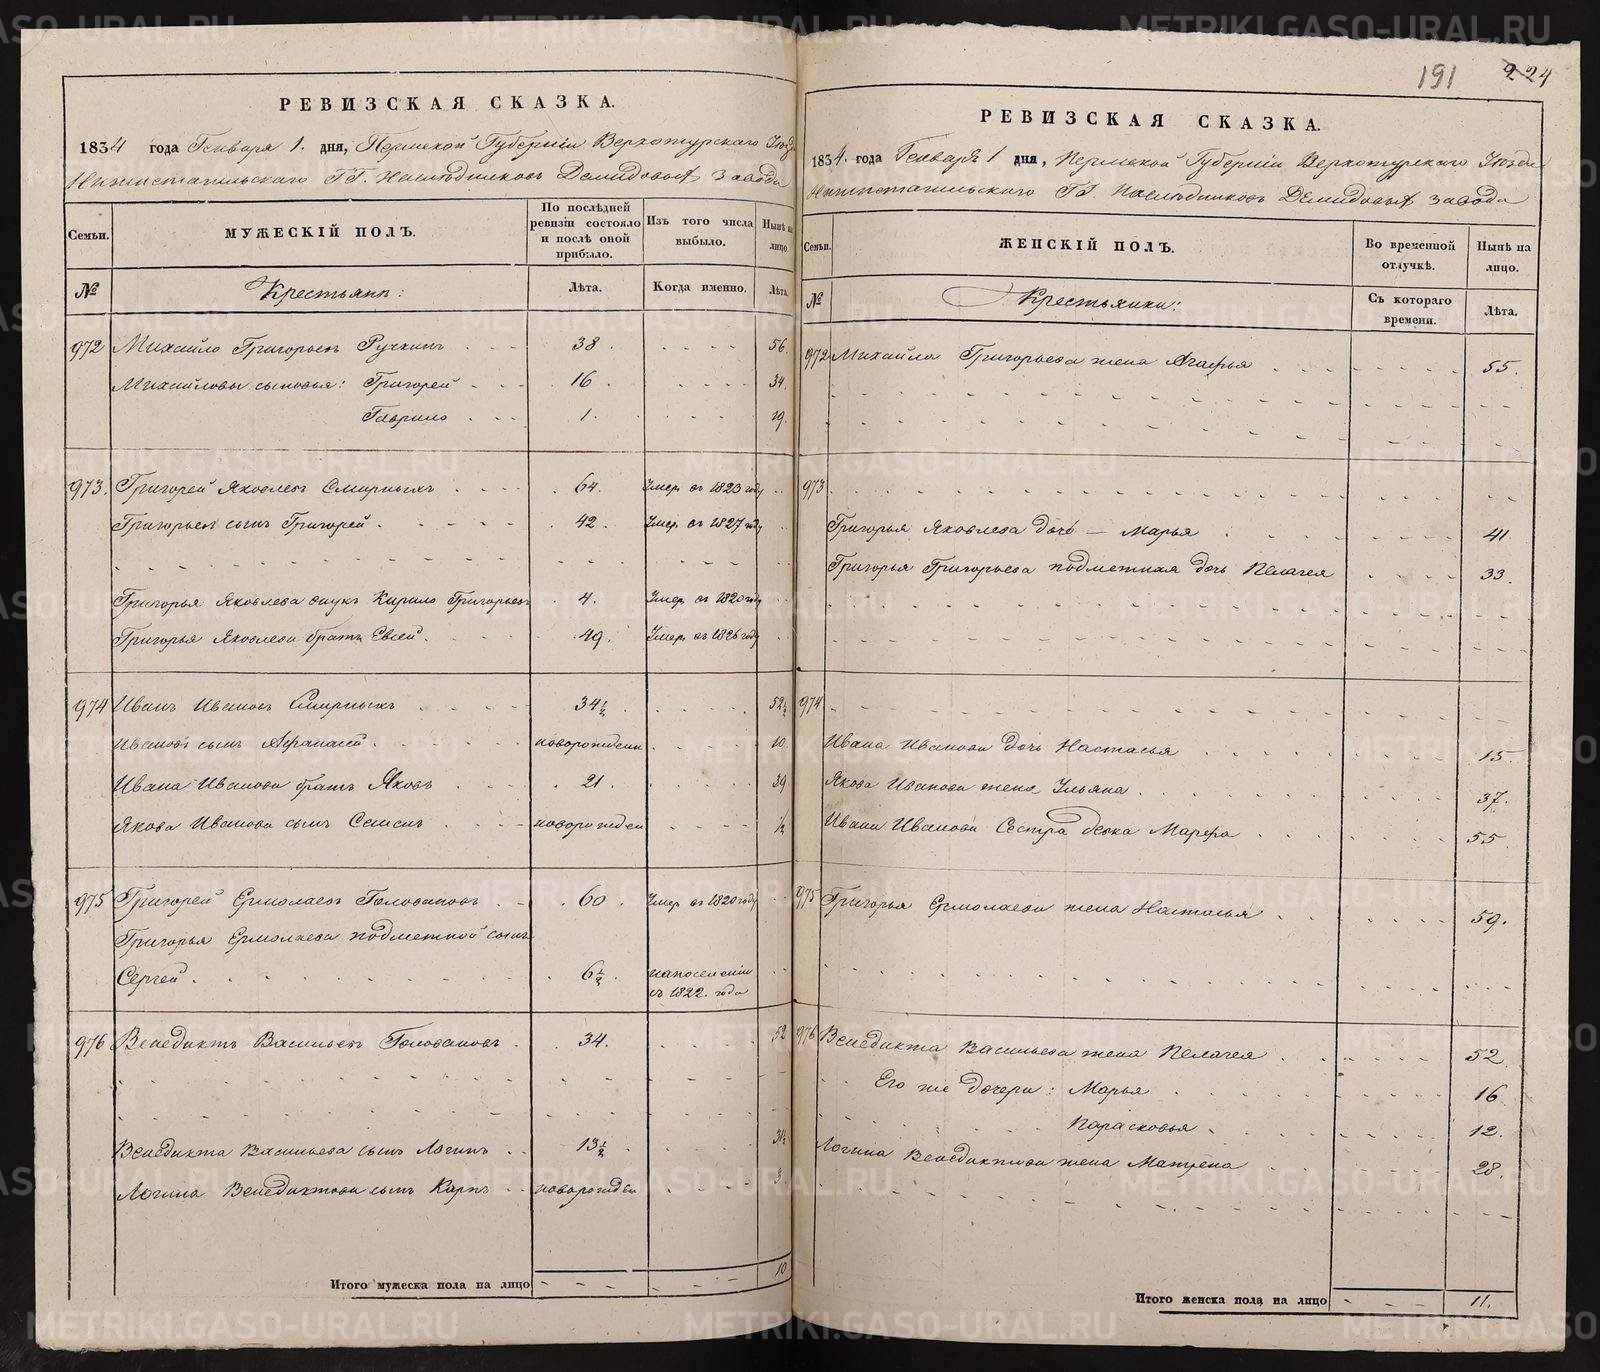 РЕВИЗСКАЯ СКАЗКА.
1834 года Генваря 1. дня, Пермской Губерніи Верхотурскаго Уѣзда
Нижнетагильскаго ГГ. Наслѣдниковъ Демидовыхъ Завода
Семьи. МУЖЕСКІЙ ПОЛЪ. По послѣдней ревизіи состояло и послѣ оной прибыло. Изъ того числа выбыло. Нынѣ на лицо.
№ Крестьянъ: Лѣта. Когда именно. Лѣта.
972 Михайло Григорьевъ Ручкинъ 38. 56.
Михайловы сыновья: Григорей 16. 34.
Гаврило 1. 19.
973. Григорей Яковлевъ Смирныхъ 64. Умер. въ 1823 году
Григорьевъ сынъ Григорей 42. Умер. въ 1827 году
Григорья Яковлева внукъ Кирило Григорьевъ 4. Умер. въ 1820 году
Григорья Яковлева братъ Евсей. 49. Умер. въ 1826 году
974 Иванъ Ивановъ Смирныхъ 34½. 52½
Ивановъ сынъ Афанасей новорожден 10.
Ивана Иванова братъ Яковъ 21. 39
Якова Иванова сынъ Семенъ новорожден ½
975 Григорей Ермолаевъ Головановъ 60. Умер. въ 1820 году
Григорья Ермолаева подметной сынъ
Сергей 6½. на поселеніи
съ 1822. года
976 Венедиктъ Васильевъ Головановъ 34. 52
Венедикта Васильева сынъ Логинъ 13½ 31½
Логина Венедиктова сынъ Карпъ новорожден 3
Итого мужеска пола на лицо 10
191 224
РЕВИЗСКАЯ СКАЗКА.
1834. года Генваря 1 дня, Пермской Губерніи Верхотурскаго Уѣзда
Нижнетагильскаго ГГ. Наслѣдниковъ Демидовыхъ завода
Семьи. ЖЕНСКІЙ ПОЛЪ. Во временной отлучкѣ. Нынѣ на лицо.
№ Крестьянки: Съ котораго времени. Лѣта.
972 Михайла Григорьева жена Агафья 55.
973
Григорья Яковлева дочь — Марья 41
Григорья Григорьева подметная дочь Пелагея 33.
974
Ивана Иванова дочь Настасья 15.
Якова Иванова жена Ульяна 37.
Ивана Иванова Сестра девка Марфа 55
975 Григорья Ермолаева жена Настасья 59.
976 Венедикта Васильева жена Пелагея 52
Его же дочери: Марья 16
Парасковья 12.
Логина Венедиктова жена Матрена 28.
Итого женска пола на лицо 11.
METRIKI.GASO-URAL.RU